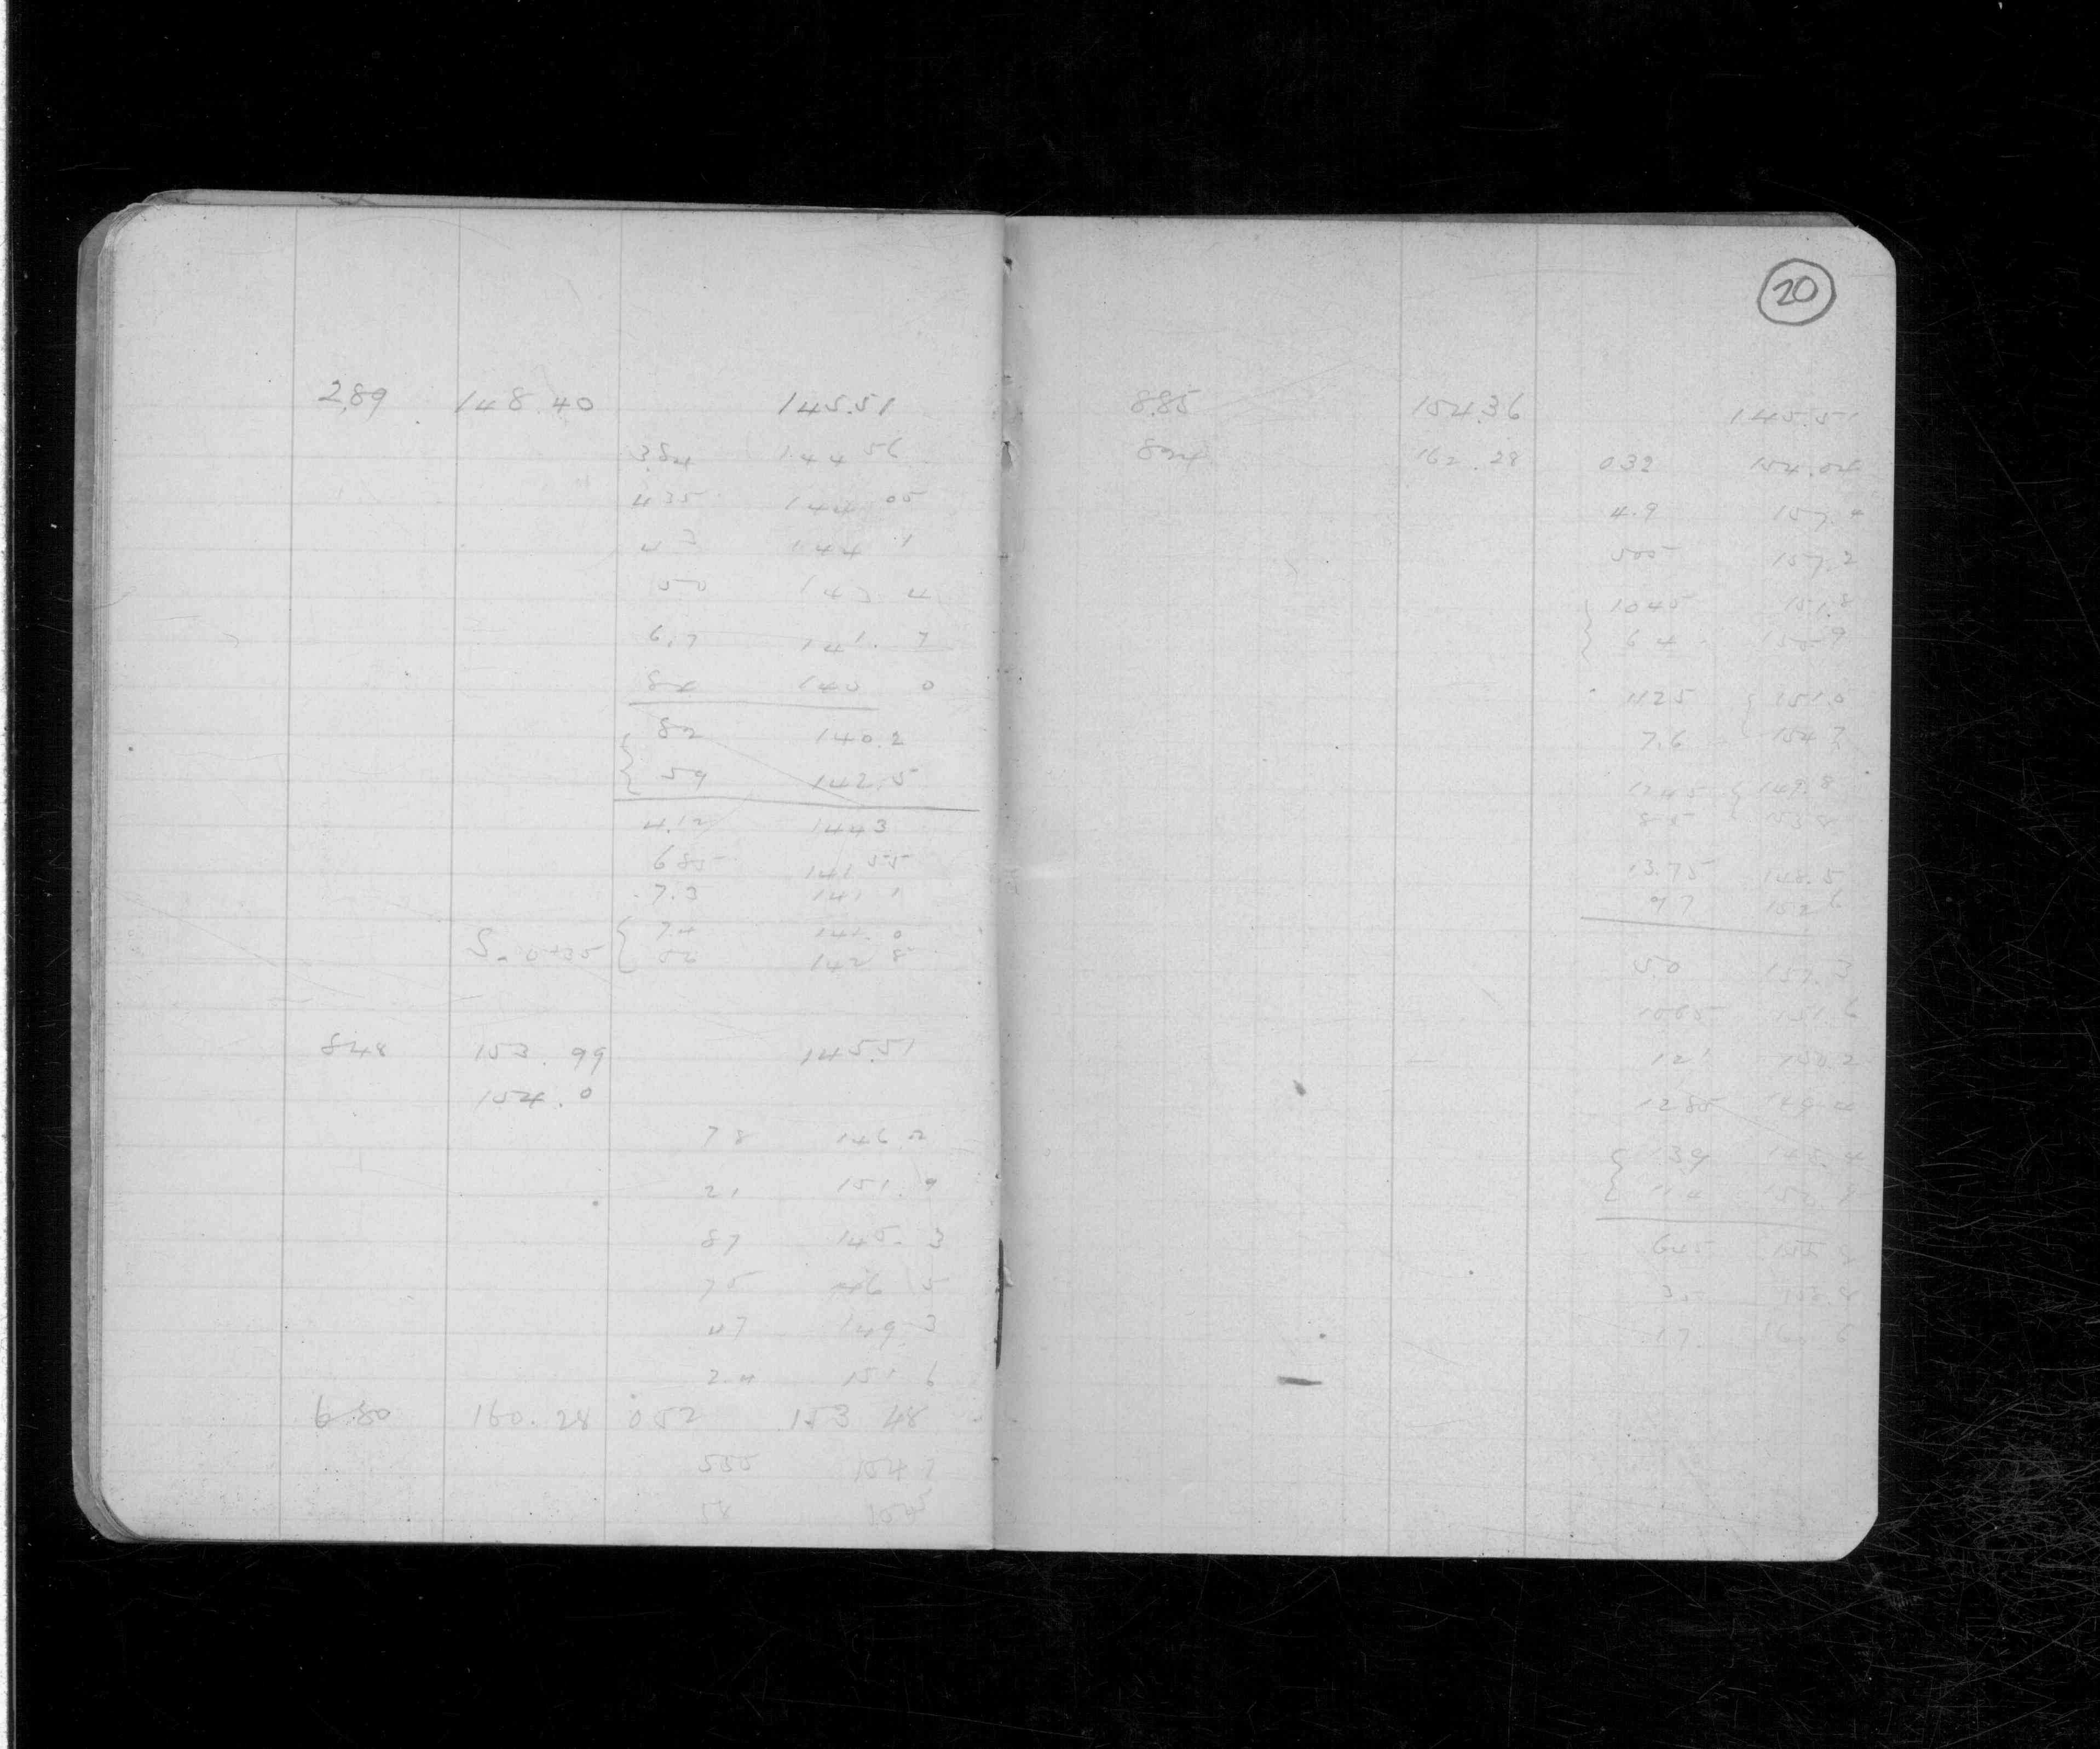 2.89 148.40 145.51
3.84 144 56
4 35 144 05
4 3 144 .1
50 143. 4
6.7 141. 7
84 140 0
82 140.2
59 142.5
4.12 144 3
6 85 141 55
7.3 141 1
74 141. 0
142 8
848 153. 99 145.51
154. 0
78 146 2
21 151. 9
87 145. 3
75 146 5
47 149 3
2.4 151 6
6.80 160. 28 0 52 153 48
555 154 7
20
8.85 154.36 145.51
824 162. 28 0 32 154.04
4.9 157. 4
505 157.2
1045 151.8
6 4 155 9
1125 151.0
7.6 154 7
1245 149.8
13.75 148.5
97 152 6
50 157. 3
1065 151. 6
121 150.2
1285 149 4
139 148. 4
114 150 9
645